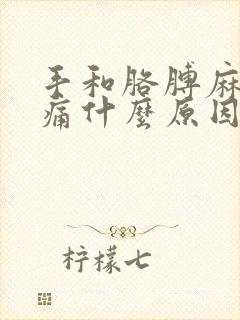 手和胳膊麻
痛什麼原因
柠檬七